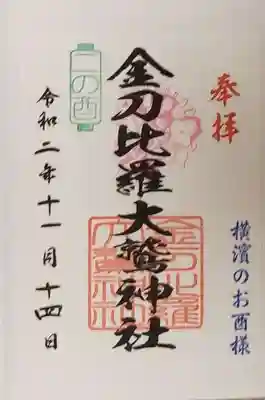 奉拝
横濱のお酉様
金刀比羅大鷲神社
二の酉
令和二年十一月十四日